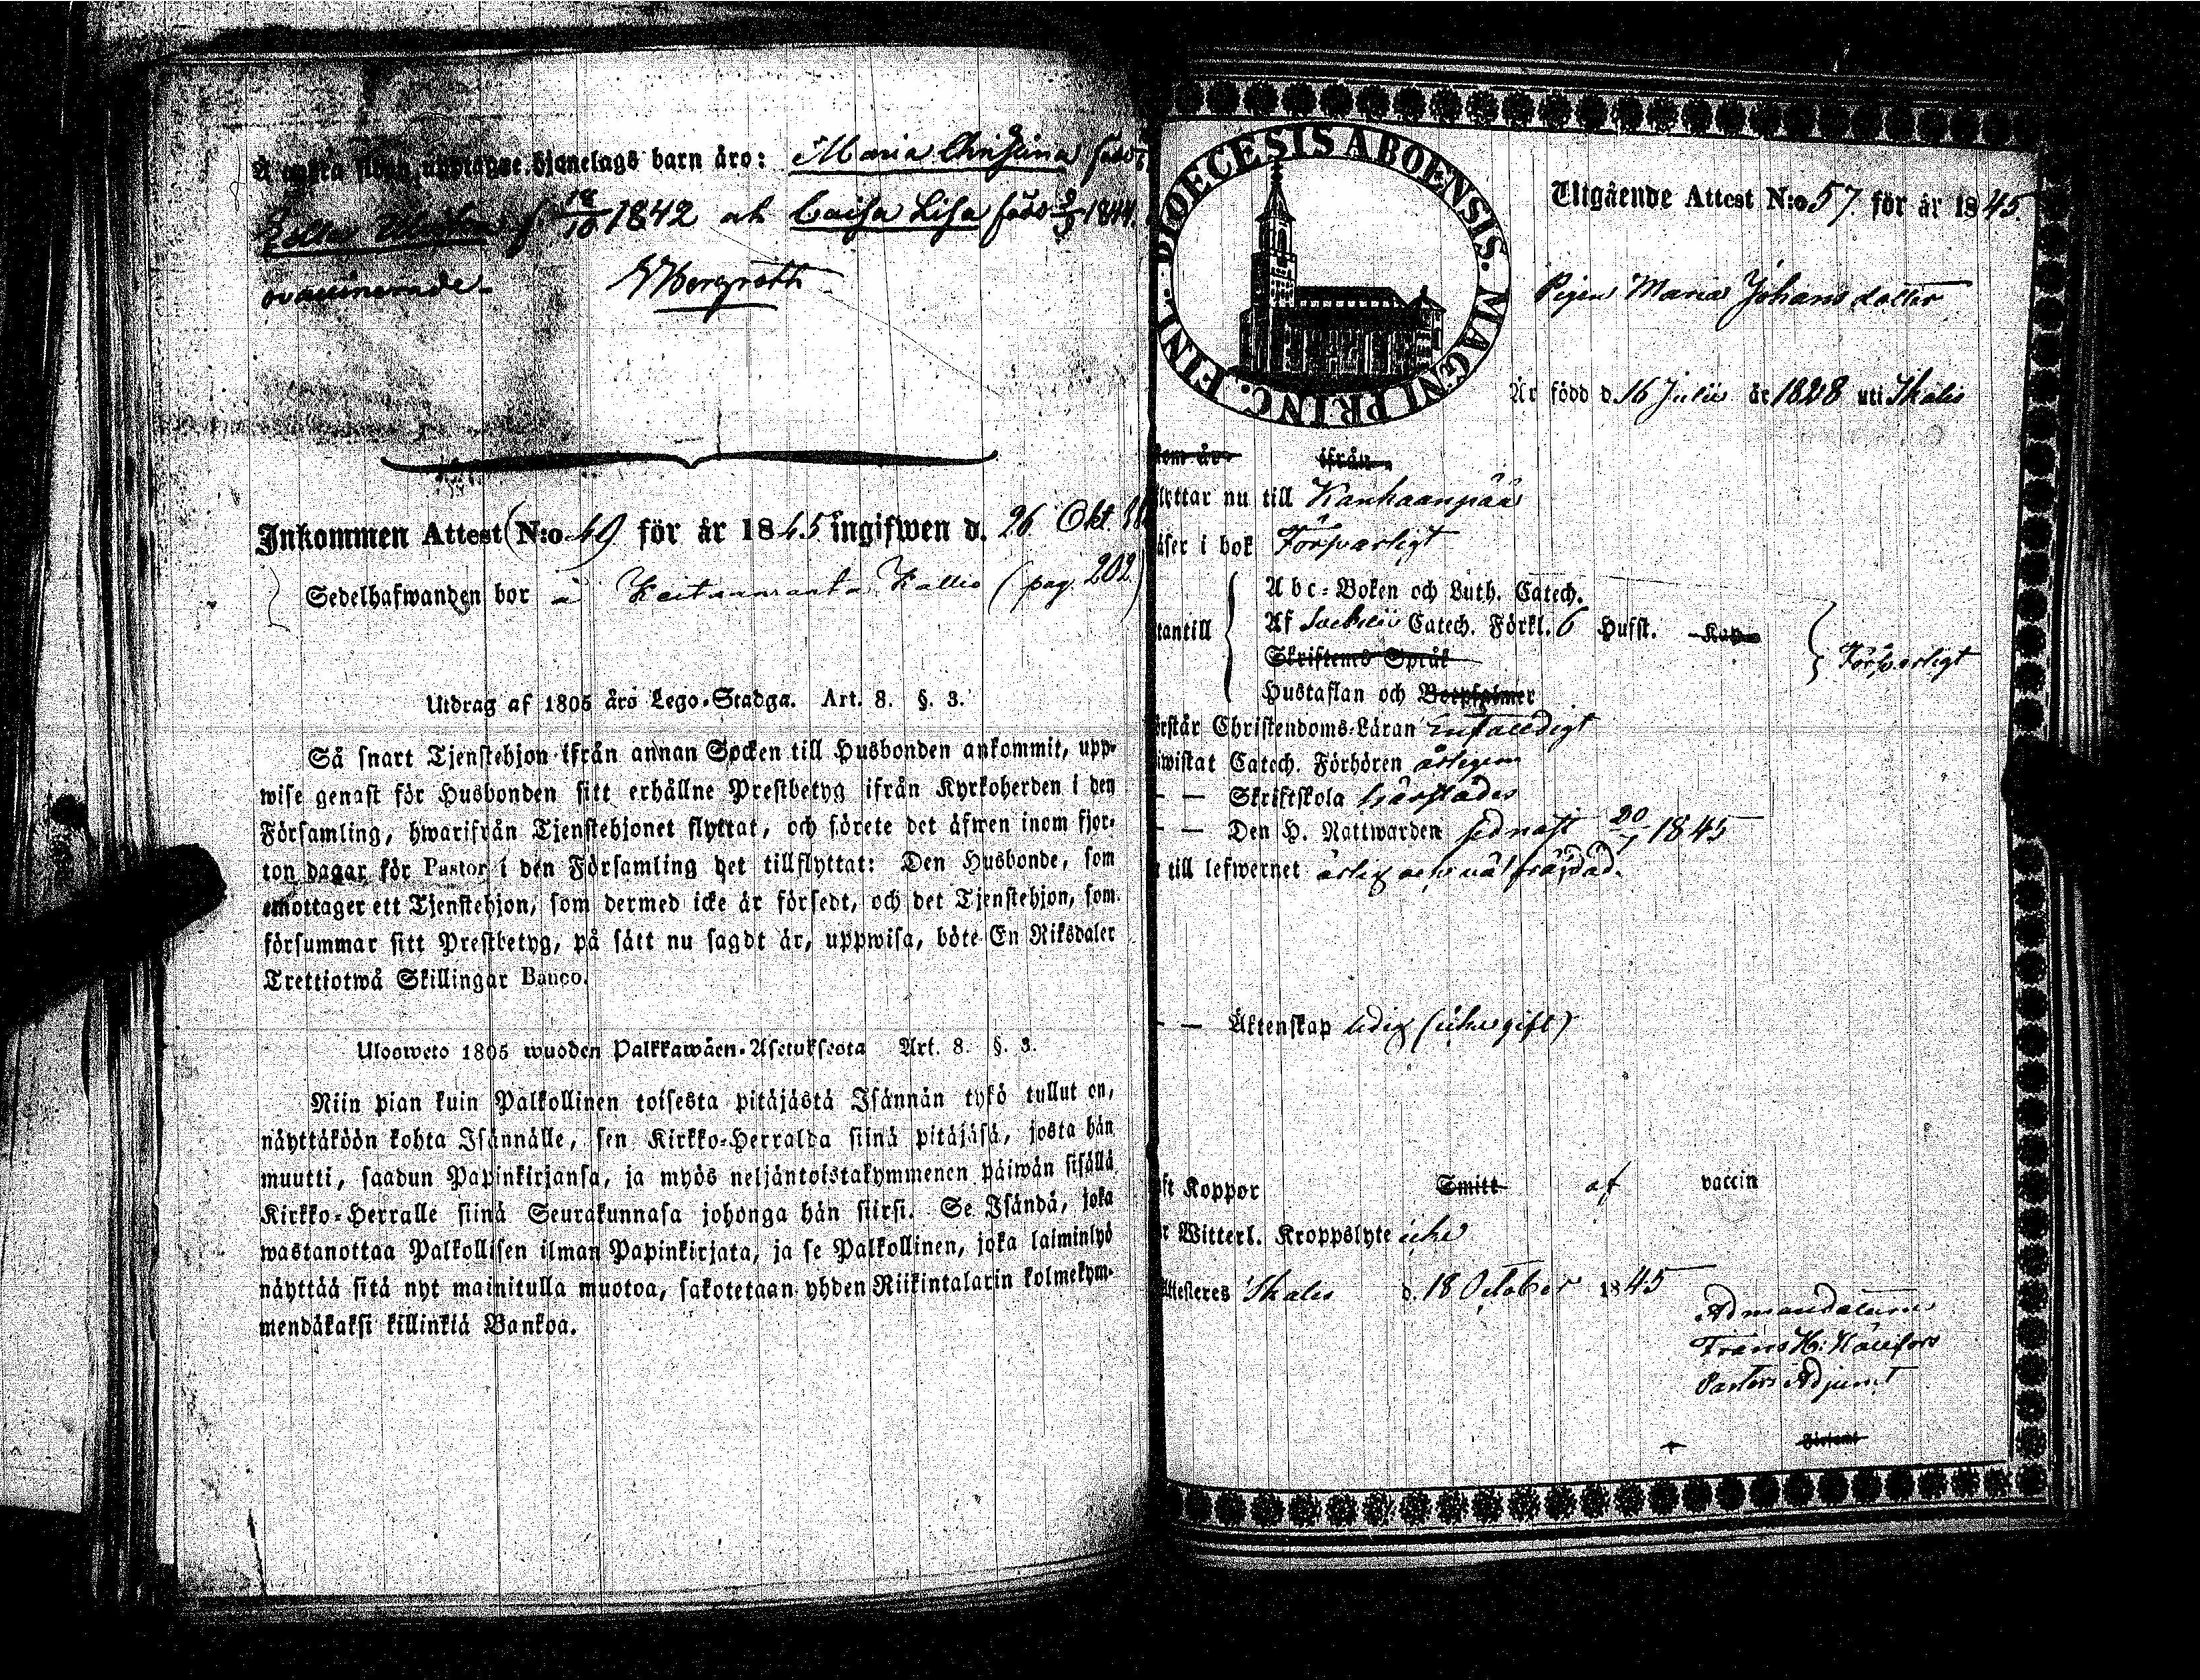 barn äro: Maria Christina född
f. 18/10 1842 och Caisa Lisa född 2/3 1844.
ovaccinerade. Bergroth
Inkommen Attest (N:o 49 för år 1845 ingifwen d. 26 Okt.
Sedelhafwanden bor å Kallio (pag. 202)
Utdrag af 1805 års Lego-Stadga. Art. 8. §. 3.
Så snart Tjenstehjon ifrån annan Socken till Husbonden ankommit, upp-
wise genast för Husbonden sitt erhållne Prestbetyg ifrån Kyrkoherden i den
Församling, hwarifrån Tjenstehjonet flyttat, och förete det äfwen inom fjor-
ton dagar för Pastor i den Församling det tillflyttat: Den Husbonde, som
emottager ett Tjenstehjon, som dermed icke är försedt, och det Tjenstehjon, som
försummar sitt Prestbetyg, på sätt nu sagdt är, uppwisa, böte En Riksdaler
Trettiotwå Skillingar Banco.
Ulosweto 1805 wuoden Palkkawäen-Asetuksesta Art. 8. §. 3.
Niin pian kuin Palkollinen toisesta pitäjästä Isännän tykö tullut on,
näyttäköön kohta Isännälle, sen Kirkko-Herralda siinä pitäjäsä, josta hän
muutti, saadun Papinkirjansa, ja myös neljäntoistakymmenen päiwän sisällä
Kirkko-Herralle siinä Seurakunnasa johonga hän siirsi. Se Isändä, joka
wastanottaa Palkollisen ilman Papinkirjata, ja se Palkollinen, joka laiminlyö
näyttää sitä nyt mainitulla muotoa, sakotetaan yhden Riikintalarin kolmekym-
mendäkaksi killinkiä Bankoa.
DIOECESIS ABOENSIS. MAGNI PRINC. FINL.
Utgående Attest N:o 57. för år 1845.
Pigan Maria Johansdotter
Är född d. 16 Julii år 1828 uti Ikalis
kom år ifrån
flyttar nu till Kankaanpää
läser i bok Försvarligt
Abc-Boken och Luth. Catech.
utantill Af Svebilii Catech. Förkl. 6 Hufst. Kap
Skriftens Språk
Försvarligt
Hustaflan och Botpsalmer
förstår Christendoms-Läran Enfaldigt
biwistat Catech. Förhören årligen
— — Skriftskola härstädes
— — Den H. Nattwarden sednast 20/7 1845
till lefwernet ärlig och välfräjdad.
— — Äktenskap ledig (icke gift)
haft Koppor Smitt af vaccin
Witterl. Kroppslyte icke
Attesteres Ikalis d. 18 October 1845
Ad mandatum
Frans H:
Pastors Adjunct